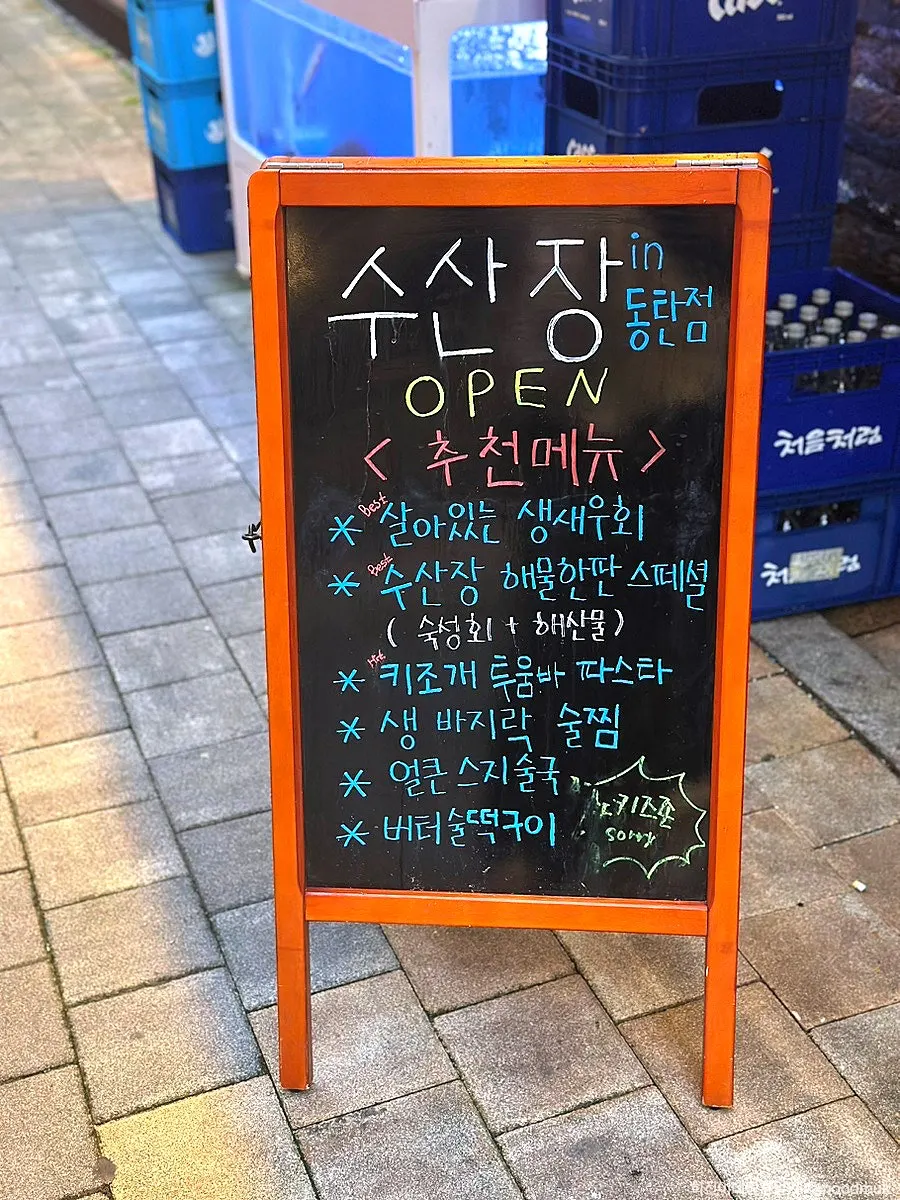 수산장 in 동탄점
OPEN
< 추천메뉴 >
* Best 살아있는 생새우회
* Best 수산장 해물한판 스페셜
( 숙성회 + 해산물 )
* Hit 키조개 투움바 파스타
* 생 바지락 술찜
* 얼큰 스지술국
* 버터술떡구이
노키즈존
sorry
처음처럼